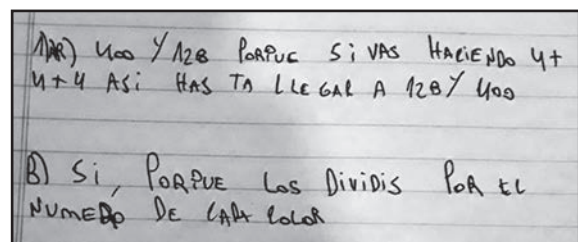 1)A) 400 Y 128 PORPUE Si VAS HACIENDO 4+
4+4 ASi HAS TA LLEGAR A 128 Y 400
B) Si, PORPUE LOS DiViDiS POR EL
NUMERO DE CADA COLOR